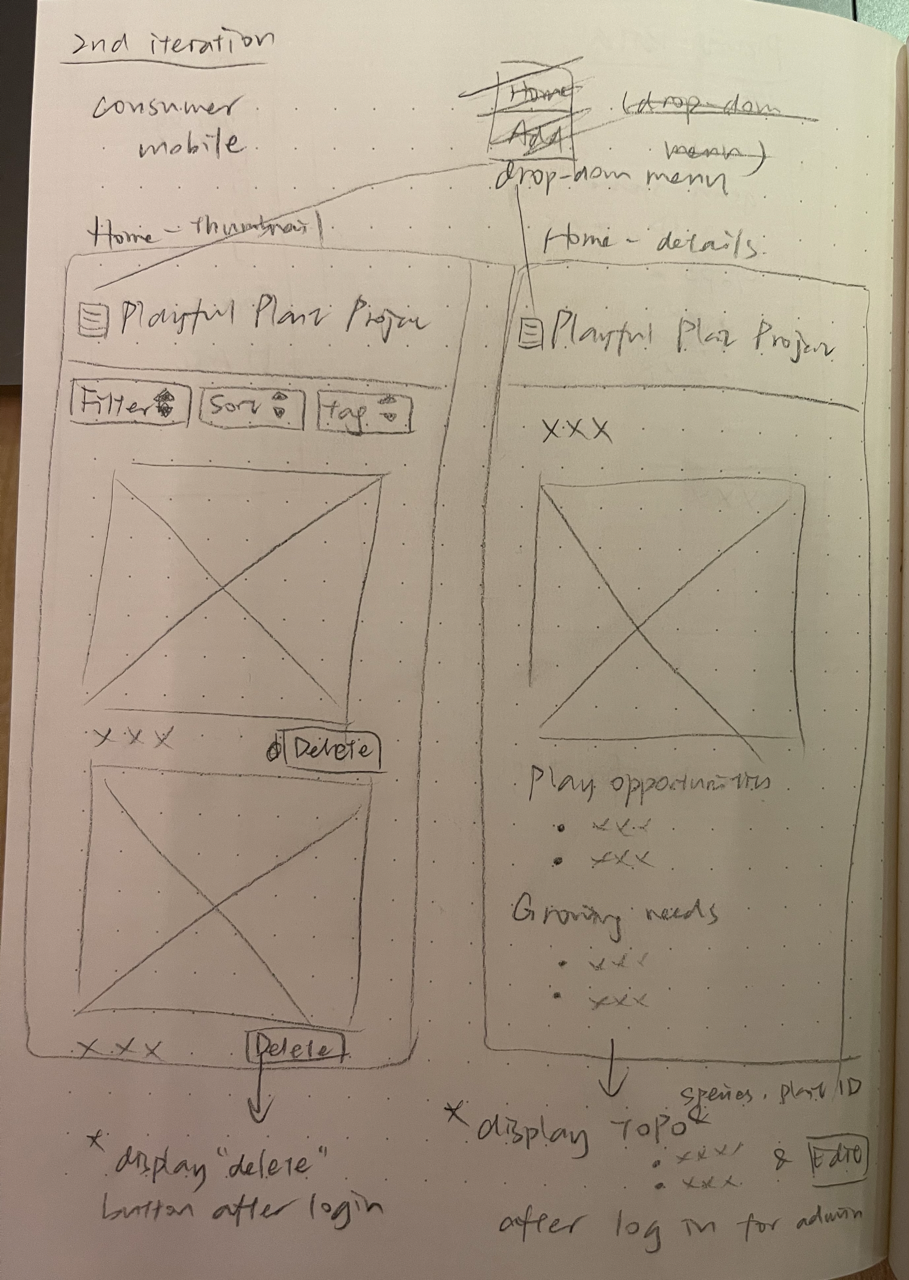 2nd iteration
consumer
mobile
Home
Add
(drop-dom
menu)
drop-dom menu
Home - Thumbnail
Playful Plant Project
Filter
Sort
tag
X X X
Delete
X X X
Delete
* display "delete"
button after login
Home - details
Playful Plant Project
X X X
Play opportunities
• XXX
• XXX
Growing needs
• XXX
• XXX
species. plant ID
* display TOPO
• XXXX
• XXX & Edit
after log in for admin